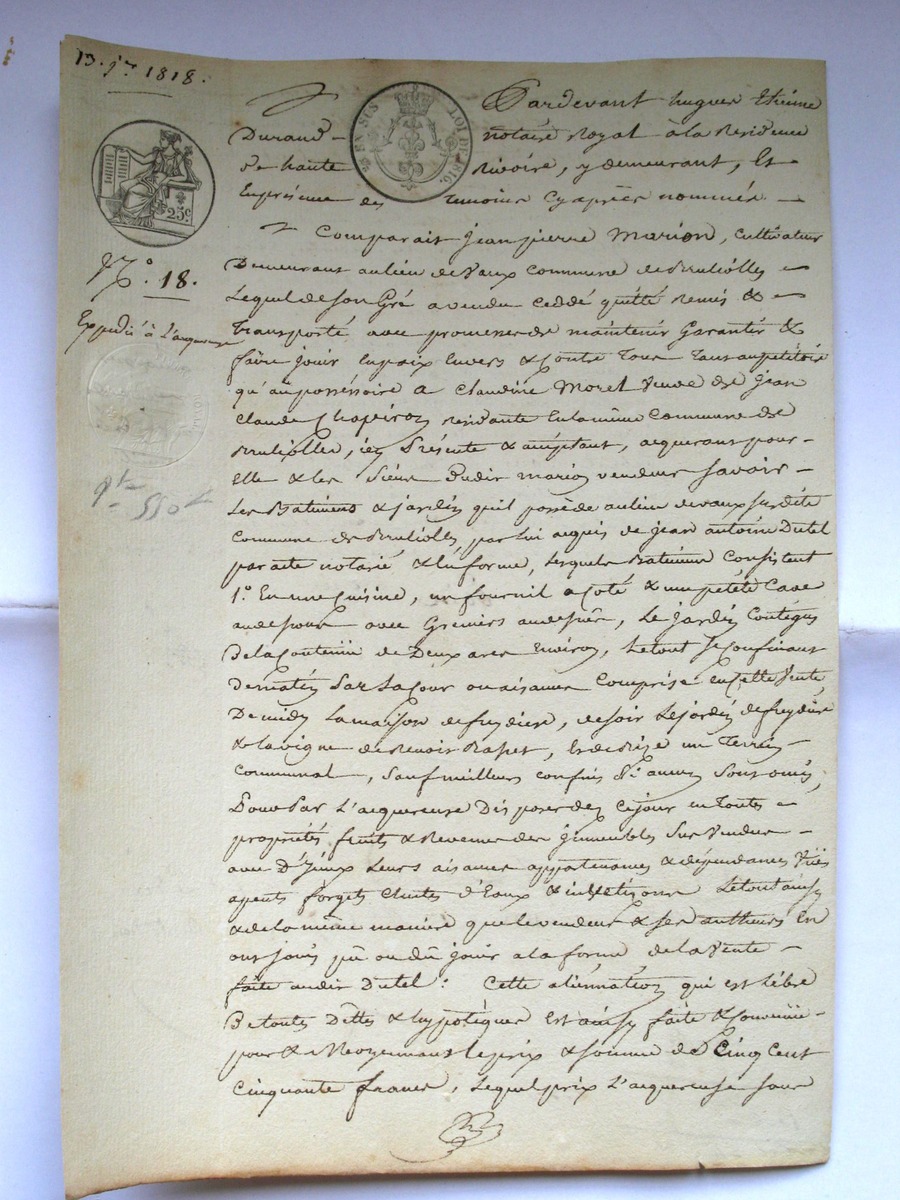 13. 9.re 1818.
EN SUS LOI DE 1816.
25 c.
N.o 18.
Expedié à L'acquereuse
q.te 550 f
Pardevant hugues Etienne
Durand notaire Royal à la Residence
De haute Rivoire, y demeurant, Et
En présence des temoins cy après nommés
Comparait Jean pierre Marion, Cultivateur
Demeurant au lieu de Vaux Commune de Brullioles
Lequel de son Gré a vendu ceddé quitté remis &
Transporté avec promesse de maintenir Garantir &
faire jouir En paix Envers & Contre Tous Tant au petitoire
qu'au possessoire a Claudine Morel Veuve de Jean
Claude résidante En la même Commune de
Brullioles, icy Présente & acceptant, acquerant pour
Elle & les Siens Dudit marion vendeur Savoir
Les Batiments & jardin qu'il possède au lieu de vaux Susdite
Commune de Brullioles par Lui acquis de Jean antoine Dutel
par acte notarié & En forme, Lesquels Batiments Consistent
1.o En une Cuisine, un fournil a Coté & un petite Cave
au dessous avec Greniers au dessus, Le Jardin Contigus
De la Contenue de Deux ares Environ, Le tout Se Confinant
De matin Par La Cour ou aisance Comprise En Cette Vente,
De midy La maison de freydière, de soir Le jardin de freydière
& la vigne de Benoit & de Bize un Terrein
Communal, Sauf meilleurs confins Si aucuns Sont omis,
Pour Par L'acquereuse Disposer dez Ce jour En Toutes
propriétés fruits & Revenus des Immeubles Sus Vendus
avec D'Iceux Leurs aisances appartenances & dépendances
Chutes d'Eaux & Le tout ainsy
& de la même manière que le vendeur & ses autheurs En
ont joui pû ou dû jouir a la forme de la Vente
faite audit Dutel : Cette alienation qui est Libre
De toutes Dettes & hypotèques Est ainsy faite & Convenüe
pour & Moyennant le prix & Somme de Cinq Cent
Cinquante francs, Lequel prix L'acquereuse Sera